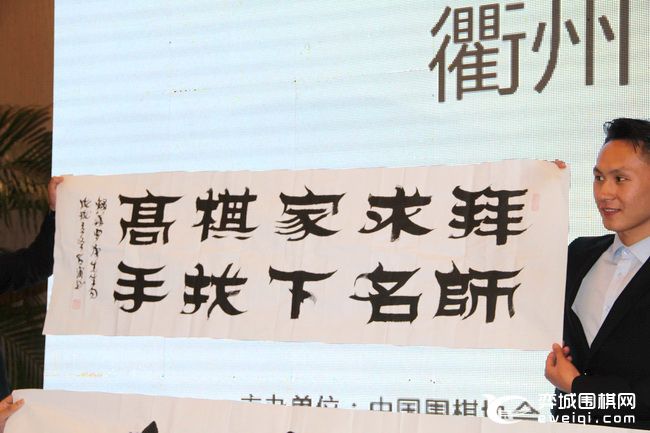 衢州
拜師
求名
家下
棋找
髙手
主办单位：中国围棋协会
弈城围棋网
eweiqi.com